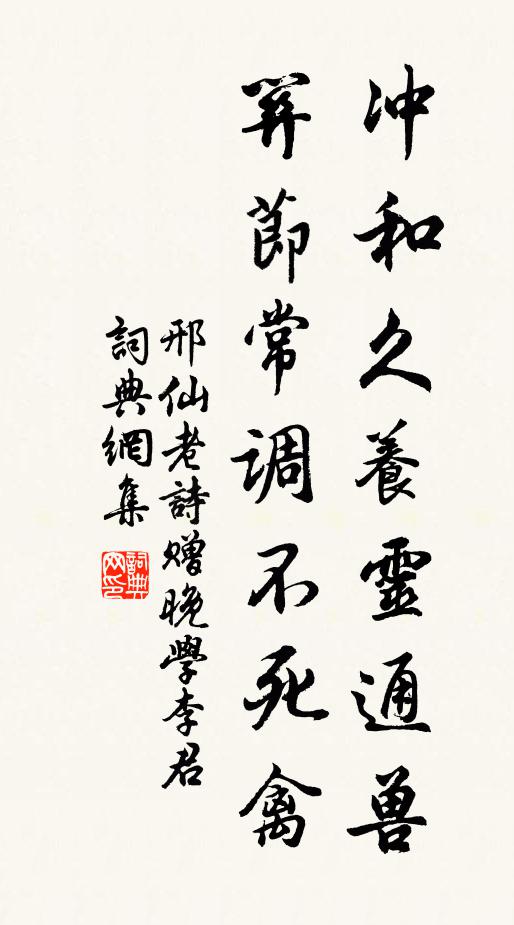 冲和久養靈通兽
莭常调不死禽
邢仙老詩赠晚學李君
詞典網集
詞典网印